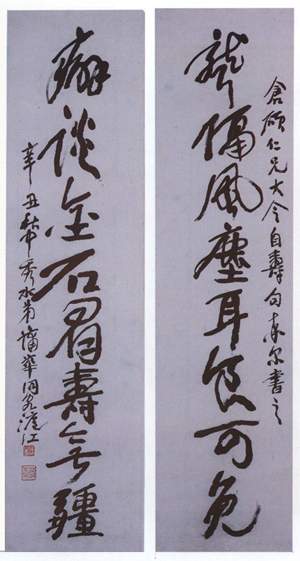 倉碩仁兄大令自壽句書之
聾隔風塵耳食可免
癖談金石眉壽無疆
辛丑秋秀水弟蒲華同客滬江